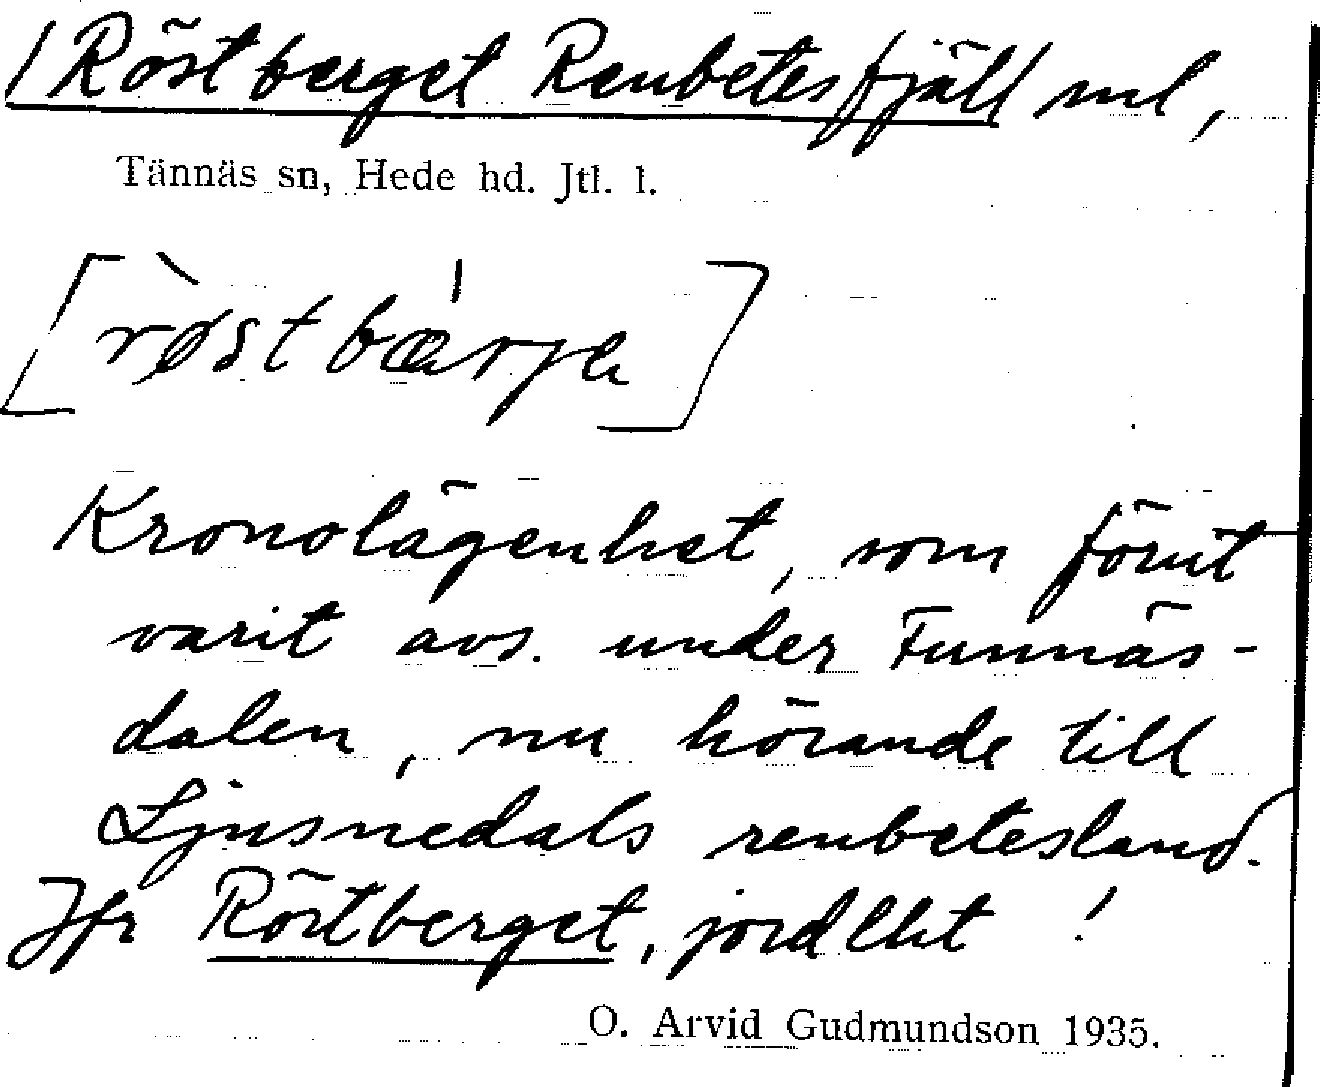 /Röstberget Renbetesfjäll/ nul,
Tännäs sn, Hede hd. Jtl. l.
[røstbærje]
Kronolägenhet, som förut
varit avs. under Funnäs-
dalen, nu hörande till
Ljusnedals renbetesland.
Jfr Röstberget, jordlht !
O. Arvid Gudmundson 1935.